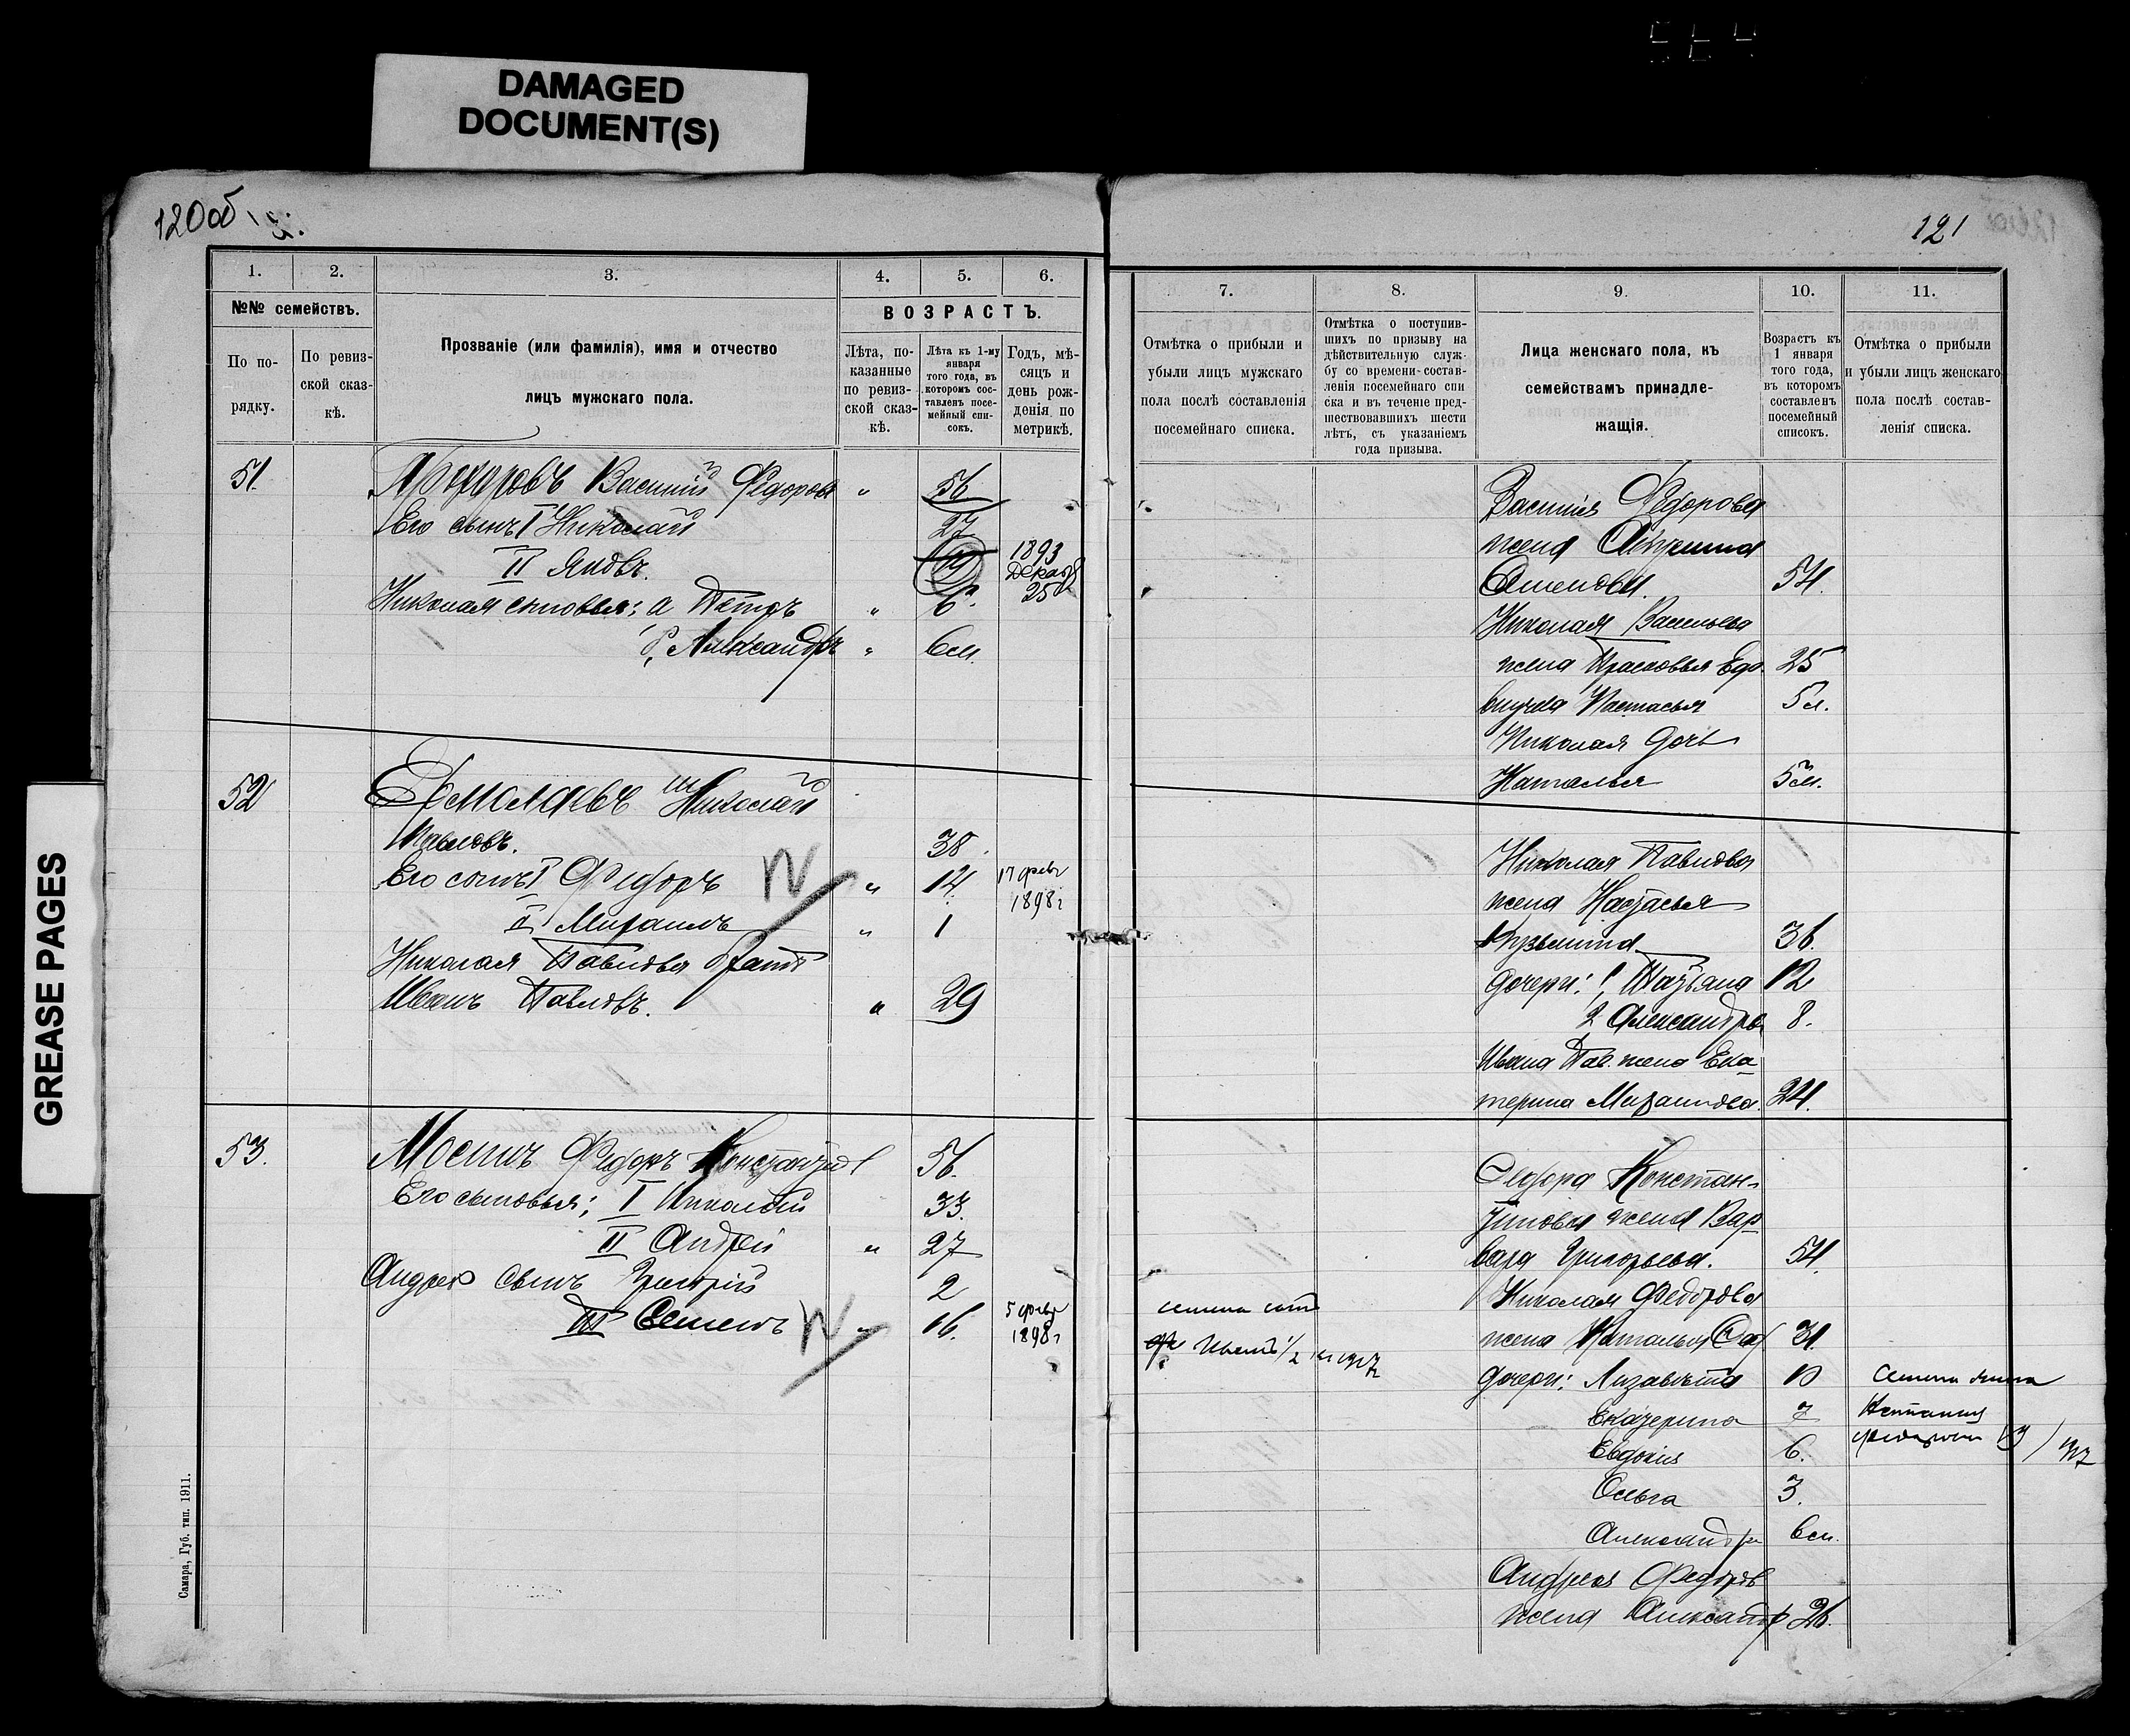 DAMAGED
DOCUMENT(S)
GREASE PAGES
120об
121
1. 2. 3. 4. 5. 6.
№№ семействъ.
По по-
рядку.
По ревиз-
ской сказ-
кѣ.
Прозваніе (или фамилія), имя и отчество
лицъ мужскаго пола.
ВОЗРАСТЪ.
Лѣта, по-
казанные
по ревиз-
ской сказ-
кѣ.
Лѣта къ 1-му
января
того года, въ
которомъ сос-
тавленъ посе-
мейный спи-
сокъ.
Годъ, мѣ-
сяцъ и
день рож-
денія по
метрикѣ.
51. Василій Федоровъ " 56
Его сынъ I Николай 27
II Яковъ. 19 1893 Декаб 25
Николая сыновья: а Петръ " 6
Александръ " 6 м.
52 Ермолаевъ Николай
Павловъ. 38
Его сынъ I Федоръ " 14 17 февр 1898 г
II Михаилъ " 1
Николая Павлова братъ
Иванъ Павловъ. " 29
53. Федоръ Константинов 56.
Его сыновья; I Николай 33.
II Андрей " 27
Андрея сынъ Григорій 2
III Семенъ " 16. 5 февр 1898 г
Самара, Губ. тип. 1911.
7. 8. 9. 10. 11.
Отмѣтка о прибыли и
убыли лицъ мужскаго
пола послѣ составленія
посемейнаго списка.
Отмѣтка о поступив-
шихъ по призыву на
дѣйствительную служ-
бу со времени состав-
ленія посемейнаго спи
ска и въ теченіе пред-
шествовавшихъ шести
лѣтъ, съ указаніемъ
года призыва.
Лица женскаго пола, къ
семействамъ принадле-
жащія.
Возрастъ къ
1 января
того года,
въ которомъ
составленъ
посемейный
списокъ.
Отмѣтка о прибыли
и убыли лицъ женскаго
пола послѣ состав-
ленія списка.
Василія Федорова
жена
54.
Николая Васильева
жена Прасковья Его. 25
внучка Настасья 5 л.
Николая дочь
Наталья 5 м.
Николая Павлова
жена Настасья
Кузьмина 36.
дочери: 1, Татьяна 12
2 Александра 8.
Ивана Пав. жена Ека
терина Михайлова. 24.
Федора Констан-
тинова жена Вар
вара Григорьева. 54.
Николая Федорова
жена Наталья 31.
дочери: Лизавета 10
Екатерина 7
Евдокія 6.
Ольга 3.
Александра 6 м.
Андрея Федоров
жена Александр 26.
Семена сынъ
Семена жена